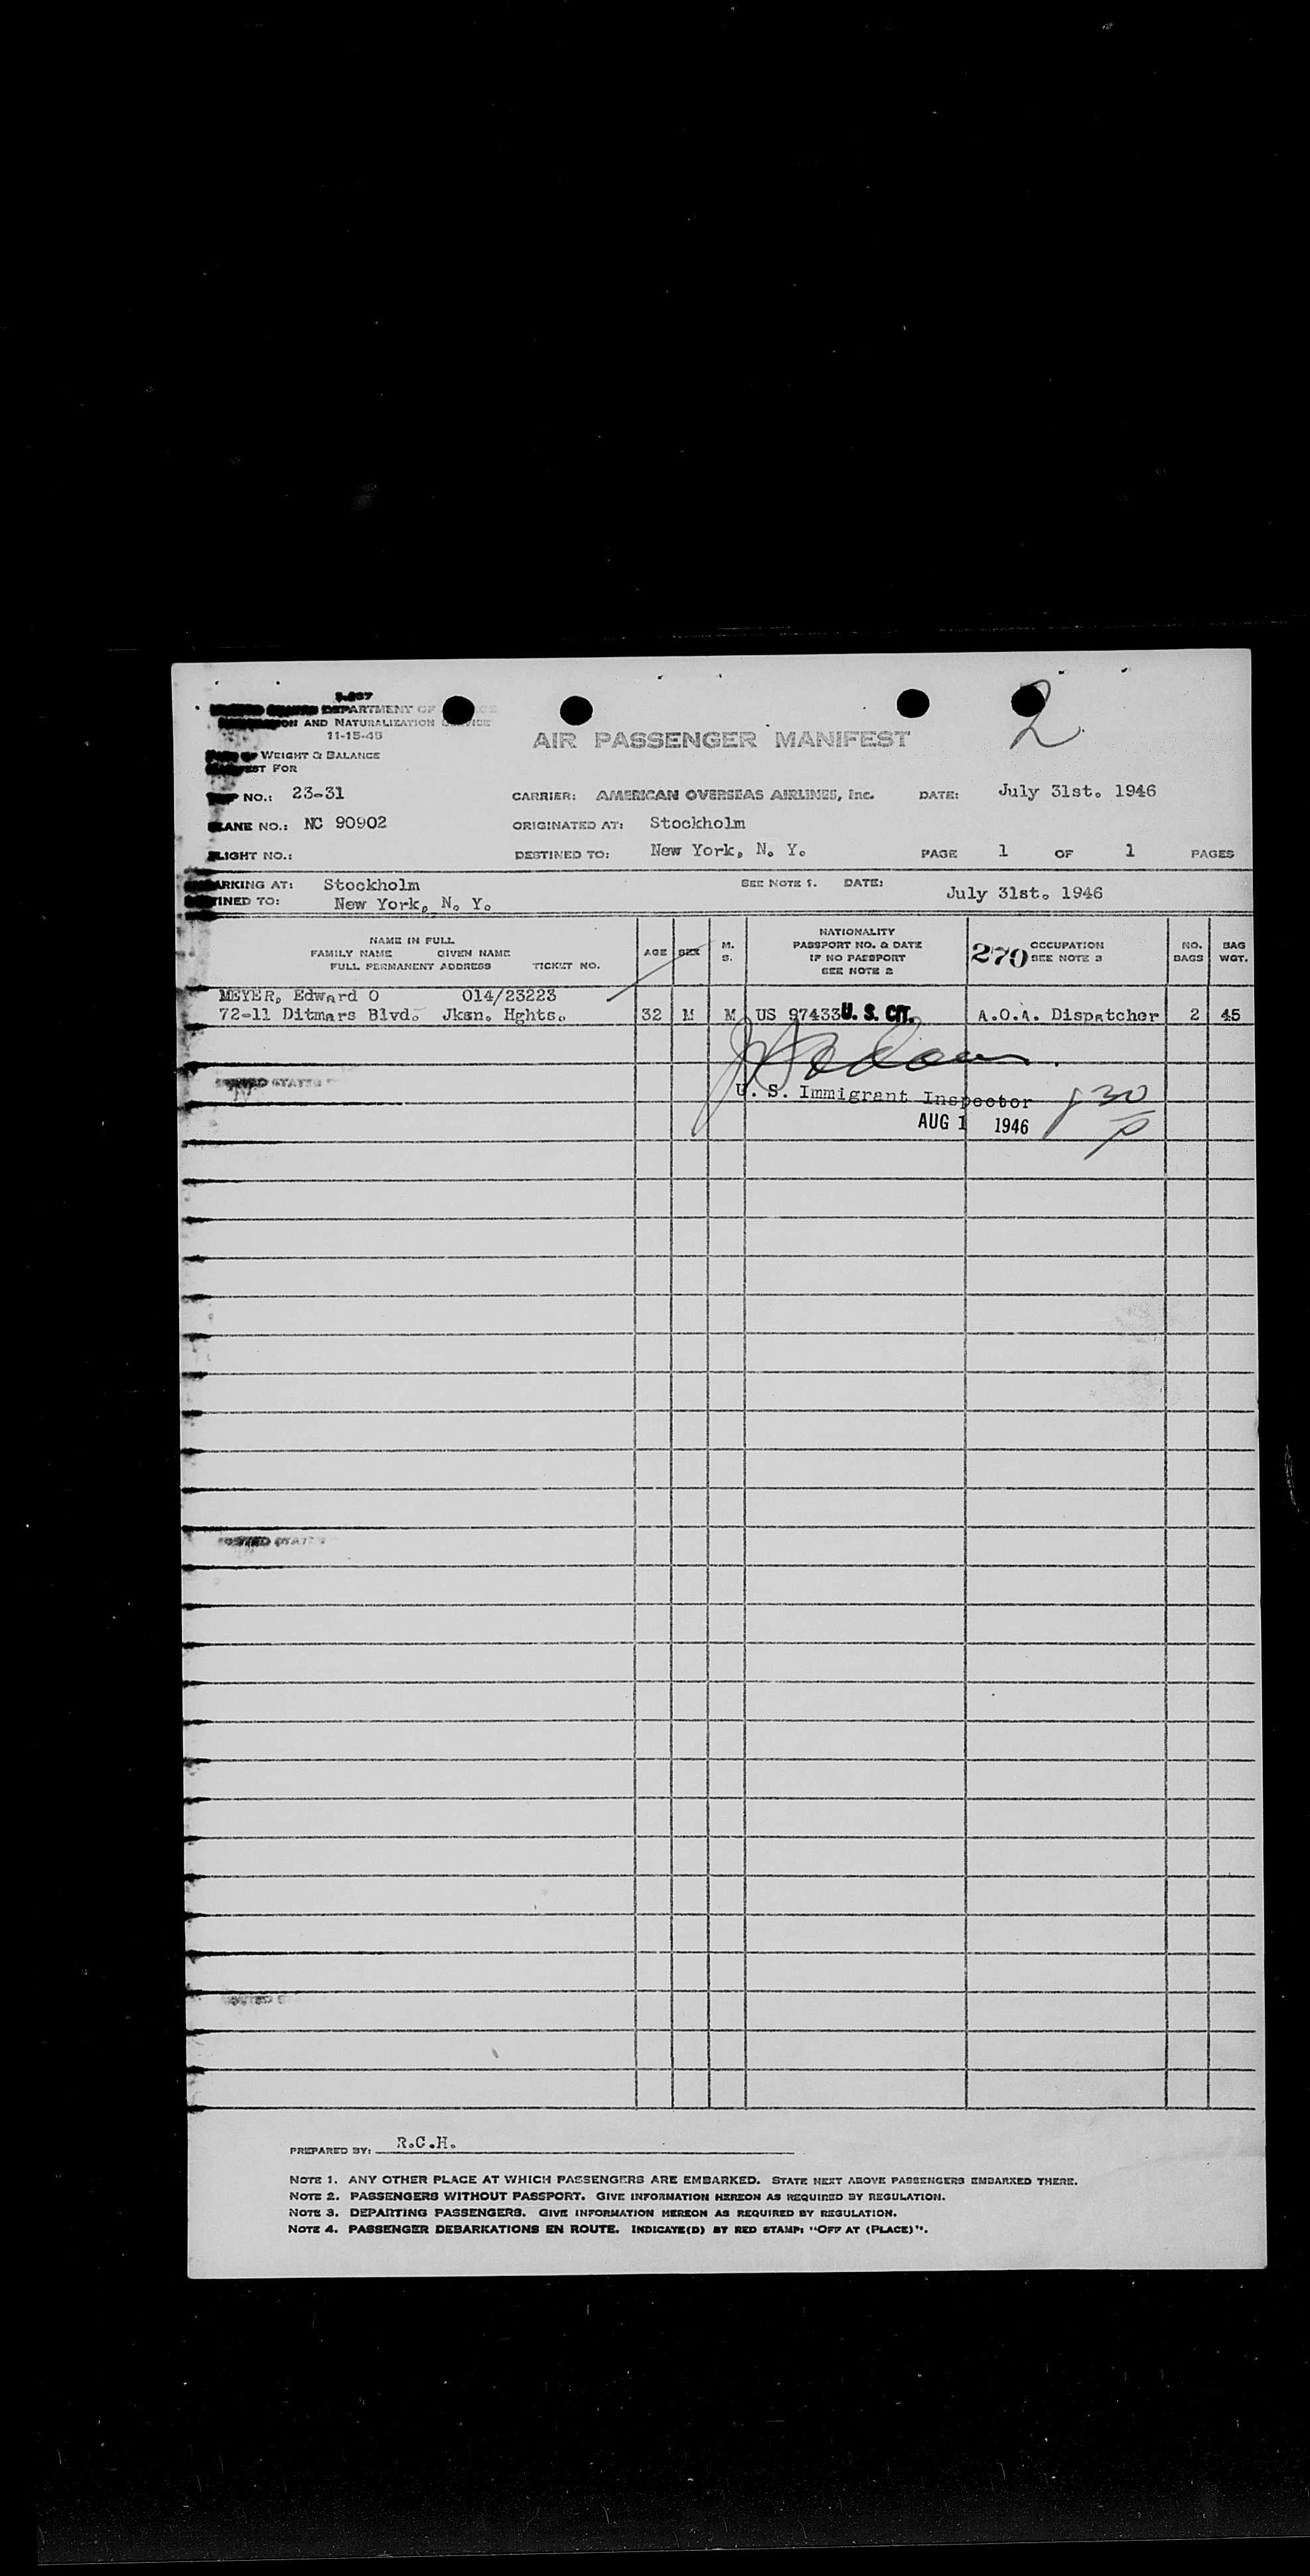 I-467
DEPARTMENT OF
AND NATURALIZATION SERVICE
11-15-45
WEIGHT & BALANCE
FOR
NO.: 23-31
CARRIER: AMERICAN OVERSEAS AIRLINES, Inc. DATE: July 31st. 1946
2
AIR PASSENGER MANIFEST
PLANE NO.: NC 90902 ORIGINATED AT: Stockholm
FLIGHT NO.: DESTINED TO: New York, N. Y. PAGE 1 OF 1 PAGES
EMBARKING AT: Stockholm SEE NOTE 1. DATE: July 31st. 1946
DESTINED TO: New York, N. Y.
NAME IN FULL
FAMILY NAME GIVEN NAME
FULL PERMANENT ADDRESS TICKET NO.
AGE SEX M. S.
NATIONALITY
PASSPORT NO. & DATE
IF NO PASSPORT
SEE NOTE 2
270 OCCUPATION
SEE NOTE 3
NO. BAGS
BAG WGT.
MEYER, Edward O 014/23223
72-11 Ditmars Blvd. Jksn. Hghts. 32 M M US 97433 U. S. CIT. A.O.A. Dispatcher 2 45
U. S. Immigrant Inspector
AUG 1 1946
830
p
PREPARED BY: R.C.H.
NOTE 1. ANY OTHER PLACE AT WHICH PASSENGERS ARE EMBARKED. STATE NEXT ABOVE PASSENGERS EMBARKED THERE.
NOTE 2. PASSENGERS WITHOUT PASSPORT. GIVE INFORMATION HEREON AS REQUIRED BY REGULATION.
NOTE 3. DEPARTING PASSENGERS. GIVE INFORMATION HEREON AS REQUIRED BY REGULATION.
NOTE 4. PASSENGER DEBARKATIONS EN ROUTE. INDICATE(D) BY RED STAMP: "OFF AT (PLACE)".